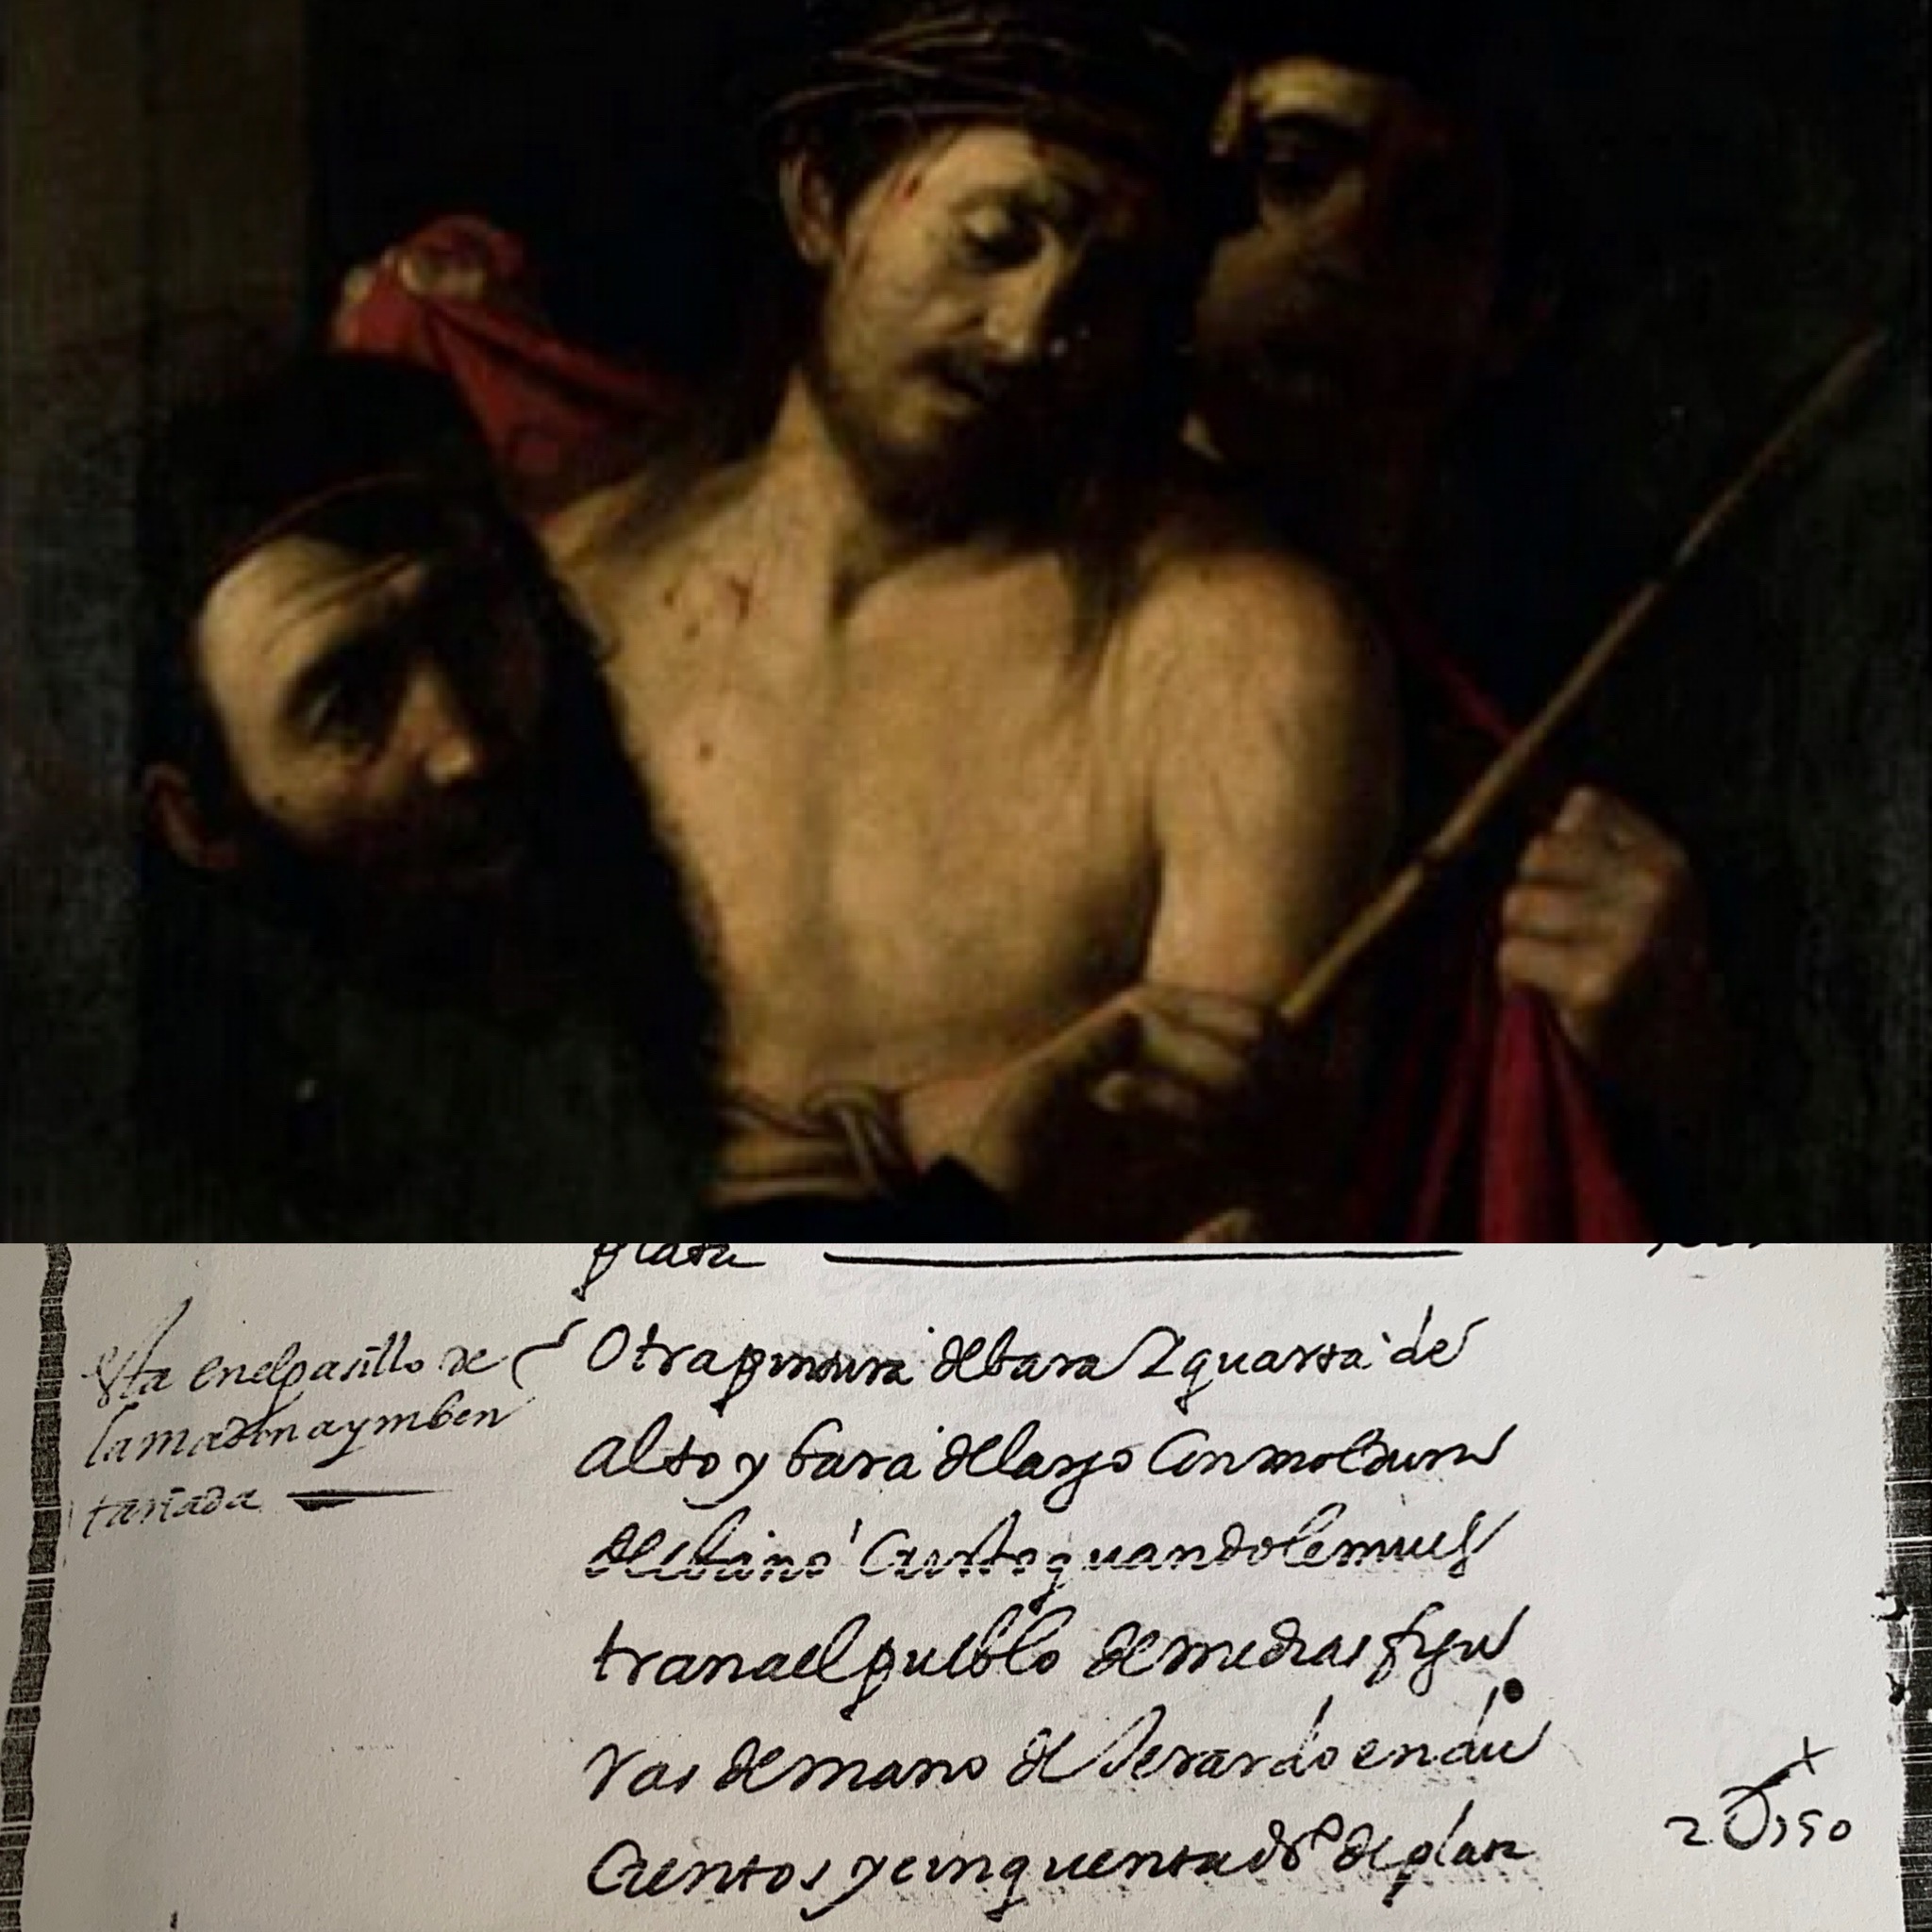 plata
esta en el pasillo de
la madona ymben
tariada
Otra pintura de bara y quarta de
alto y bara de largo con moldura
de ebano Cristo quando le mues
tran al pueblo de medias figu
ras de mano de Jerardo en du
cientos y cinquenta dos de plata
2U250